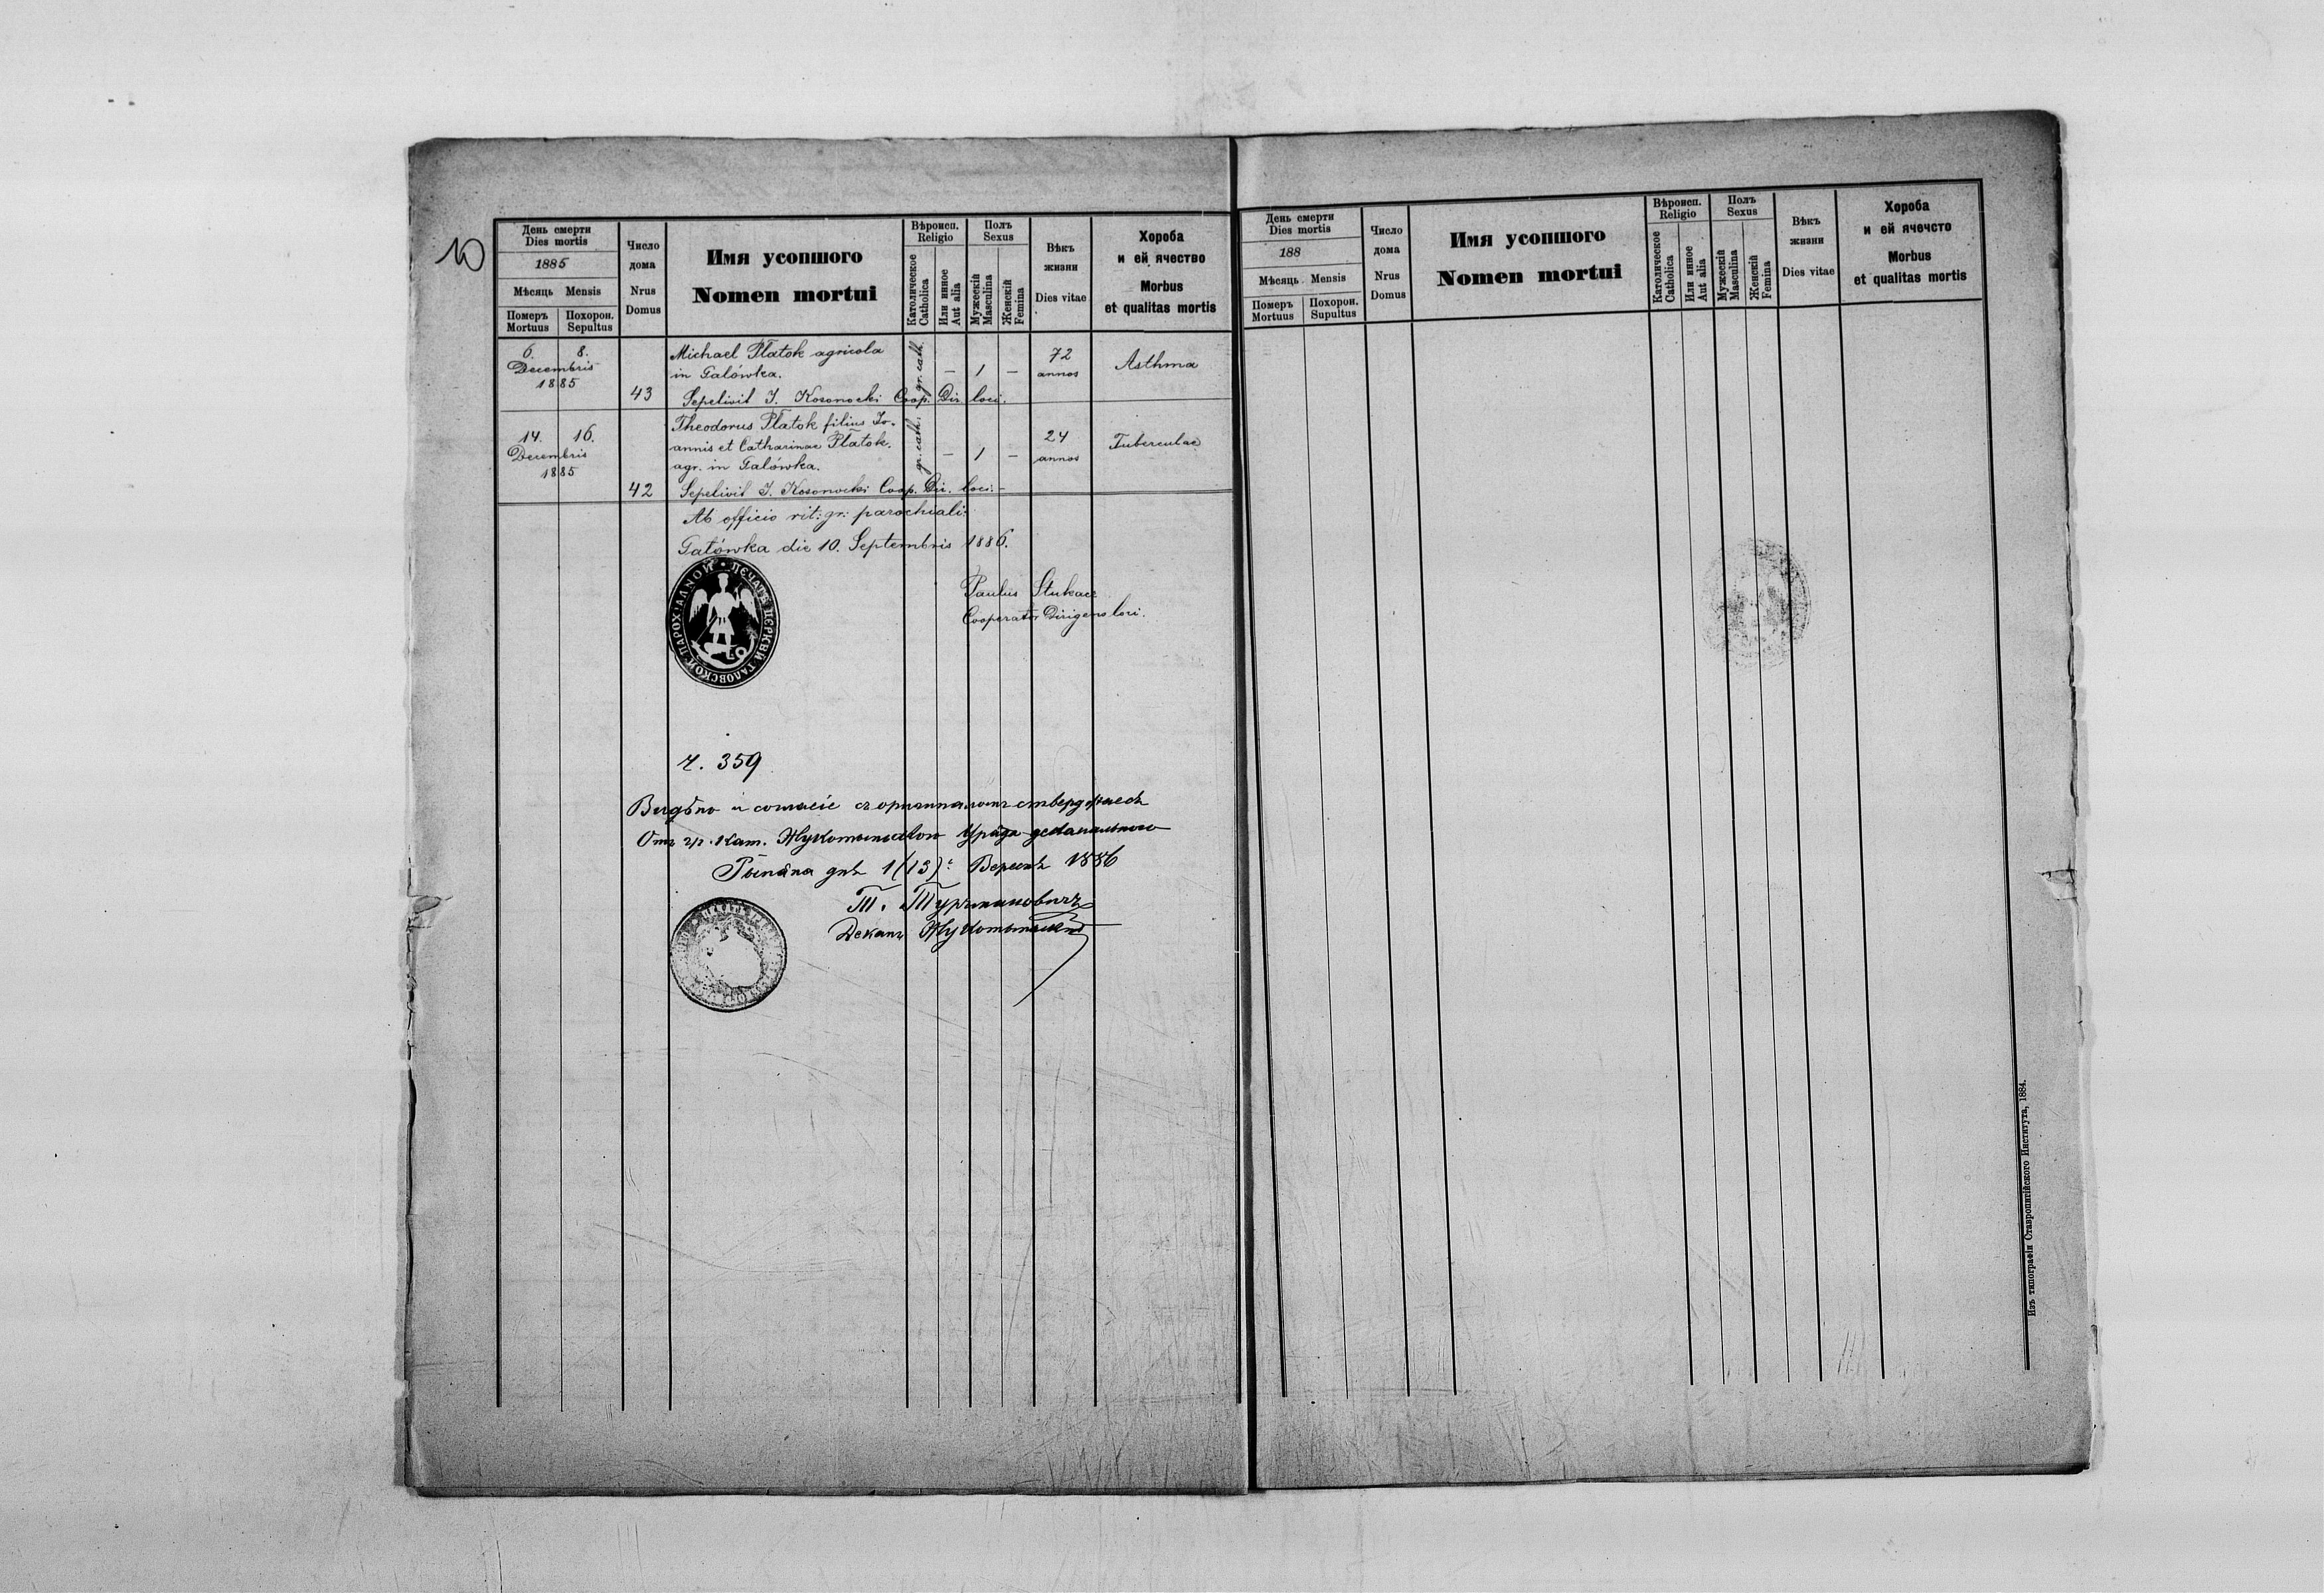 10
День смерти
Dies mortis
1885
Мѣсяць Mensis
Померъ Похорон.
Mortuus Sepultus
Число
дома
Nrus
Domus
Имя усопшого
Nomen mortui
Вѣроисп.
Religio
Католическое
Catholica
Или инное
Aut alia
Полъ
Sexus
Мужескій
Masculina
Женскій
Femina
Вѣкъ
жизни
Dies vitae
Хороба
и ей ячество
Morbus
et qualitas mortis
6. 8.
Decembris
1885
43
Michael Płatok agricola
in Galówka.
Sepelivit J. Kosonocki Coop. Dir. loci.
gr. cath.
— 1 —
72
annos
Asthma
14. 16.
Decembris
1885
42
Theodorus Płatok filius Jo-
annis et Catharinae Płatok.
agr. in Galówka.
Sepelivit J. Kosonocki Coop. Dir. loci.—
gr. cath.
— 1 —
24
annos
Tuberculae
Ab officio rit: gr: parochiali:
Galówka die 10. Septembris 1886.
ПЕЧАТЬ ЦЕРКВИ ГАЛОВСКОЙ ПАРОХІАЛНОЙ
Paulus Stukacz
Cooperator Dirigens loci.
Ч. 359
Видѣно и согласіе съ оригиналомъ ствердждаесь
Отъ гр. кат. Жукотинского Уряда деканального
дня 1(13): Вересня 1886
Т.
Деканъ Жукотинскій
День смерти
Dies mortis
188
Мѣсяць Mensis
Померъ Похорон.
Mortuus Supultus
Число
дома
Nrus
Domus
Имя усопшого
Nomen mortui
Вѣроисп.
Religio
Католическое
Catholica
Или инное
Aut alia
Полъ
Sexus
Мужескій
Masculina
Женскій
Femina
Вѣкъ
жизни
Dies vitae
Хороба
и ей ячечсто
Morbus
et qualitas mortis
Изъ типографіи Ставропигійского Института, 1884.